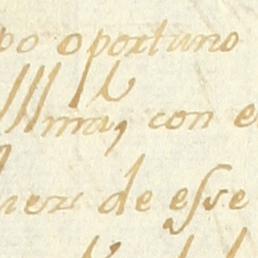 po oportuno
Illma, con e
uez de esse